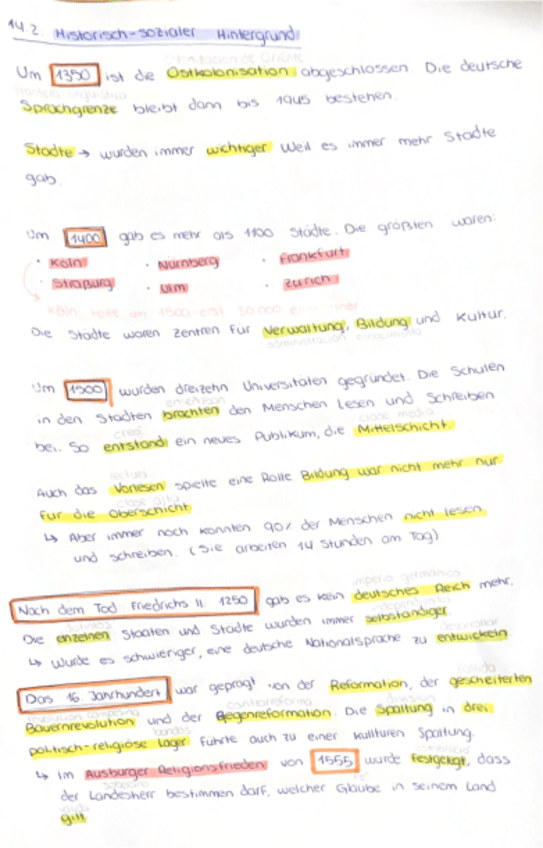 14.2. Historisch-sozialer Hintergrund:
colonización de Oriente
Um 1350 ist die Ostkolonisation abgeschlossen. Die deutsche
frontera lingüística
Sprachgrenze bleibt dann bis 1945 bestehen.
Städte → wurden immer wichtiger. Weil es immer mehr Städte
gab.
Um 1400 gab es mehr als 1100 Städte. Die größten waren:
· Köln · Nürnberg · Frankfurt
· Straßurg · Ulm · Zürich
Köln hatte um 1500 erst 30.000
Die Städte waren Zentren für Verwaltung, Bildung und Kultur.
administración conocimiento
Um 1500 wurden dreizehn Universitäten gegründet. Die Schulen
in den Städten brachten den Menschen Lesen und Schreiben
clase media
bei. So entstand ein neues Publikum, die Mittelschicht.
lectura
Auch das Vorlesen spielte eine Rolle. Bildung war nicht mehr nur
clase alta
für die Oberschicht.
↳ Aber immer noch konnten 90% der Menschen nicht lesen
und schreiben. (Sie arbeiten 14 Stunden am Tag)
imperio germánico
Nach dem Tod Friedrichs II. 1250 gab es kein deutsches Reich mehr.
independiente
Die einzelnen Staaten und Städte wurden immer selbständiger.
desarrollar
↳ Wurde es schwieriger, eine deutsche Nationalsprache zu entwickeln.
fallida
Das 16 Janrhundert war geprägt von der Reformation, der gescheiterten
revolución campesina contrareforma división
Bauernrevolution und der Gegenreformation. Die Spaltung in drei
bandos
politisch-religiöse Lager führte auch zu einer kullturen Spaltung.
↳ Im Ausburger Religionsfrieden von 1555 wurde festgelegt, dass
der Landesherr bestimmen darf, welcher Glaube in seinem Land
gilt.